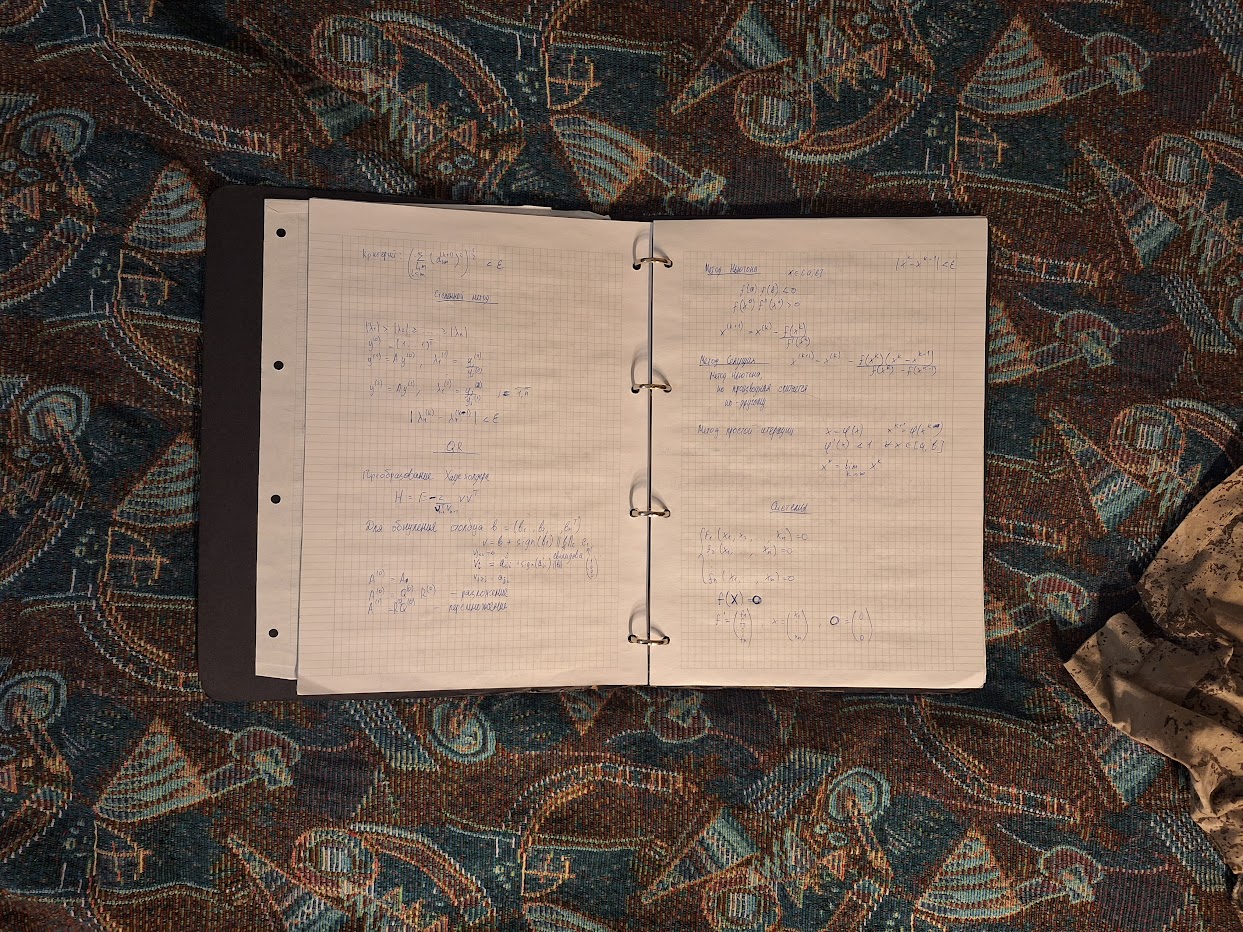 Критерий (Σ (a_lm^(k+1))²)^½ < ε
Степенной метод
|λ₁| > |λ₂| ≥ ... ≥ |λn|
y^(1) = A y^(0), λ₁^(1) = y_j^(1) / y_j^(0)
y^(2) = A y^(1), λ₁^(2) = y_j^(2) / y_j^(1) j = 1,n
|λ₁^(k) − λ₁^(k−1)| < ε
QR
Преобразование Хаусхолдера
H = E − 2/(vᵀv) vvᵀ
Для обнуления столбца b = (b₁, b₂, bn)ᵀ
v = b + sign(b₁) ||b||₂ e₁
A^(0) = A₀
A^(0) = Q^(0) R^(0) – разложение
A^(1) = R^(0) Q^(0) – произведение
|x^k − x^(k−1)| < ε
Метод Ньютона x ∈ [a, b]
f(a) f(b) < 0
f(x⁰) f''(x⁰) > 0
x^(k+1) = x^(k) − f(x^k) / f'(x^k)
Метод Секущих x^(k+1) = x^(k) − f(x^k)(x^k − x^(k−1)) / (f(x^k) − f(x^(k−1)))
Метод Ньютона,
но производная считается
по-другому
Метод простой итерации x = φ(x) x^(k+1) = φ(x^(k))
φ'(x) < 1 ∀ x ∈ [a, b]
x* = lim_(k→∞) x^k
Системы
{ f₁ (x₁, x₂, xn) = 0
f₂ (x₁, xn) = 0
fn (x₁, xn) = 0
f(X) = 0
F = (f₁ f₂ fn) x = (x₁ xn), 0 = (0 0)